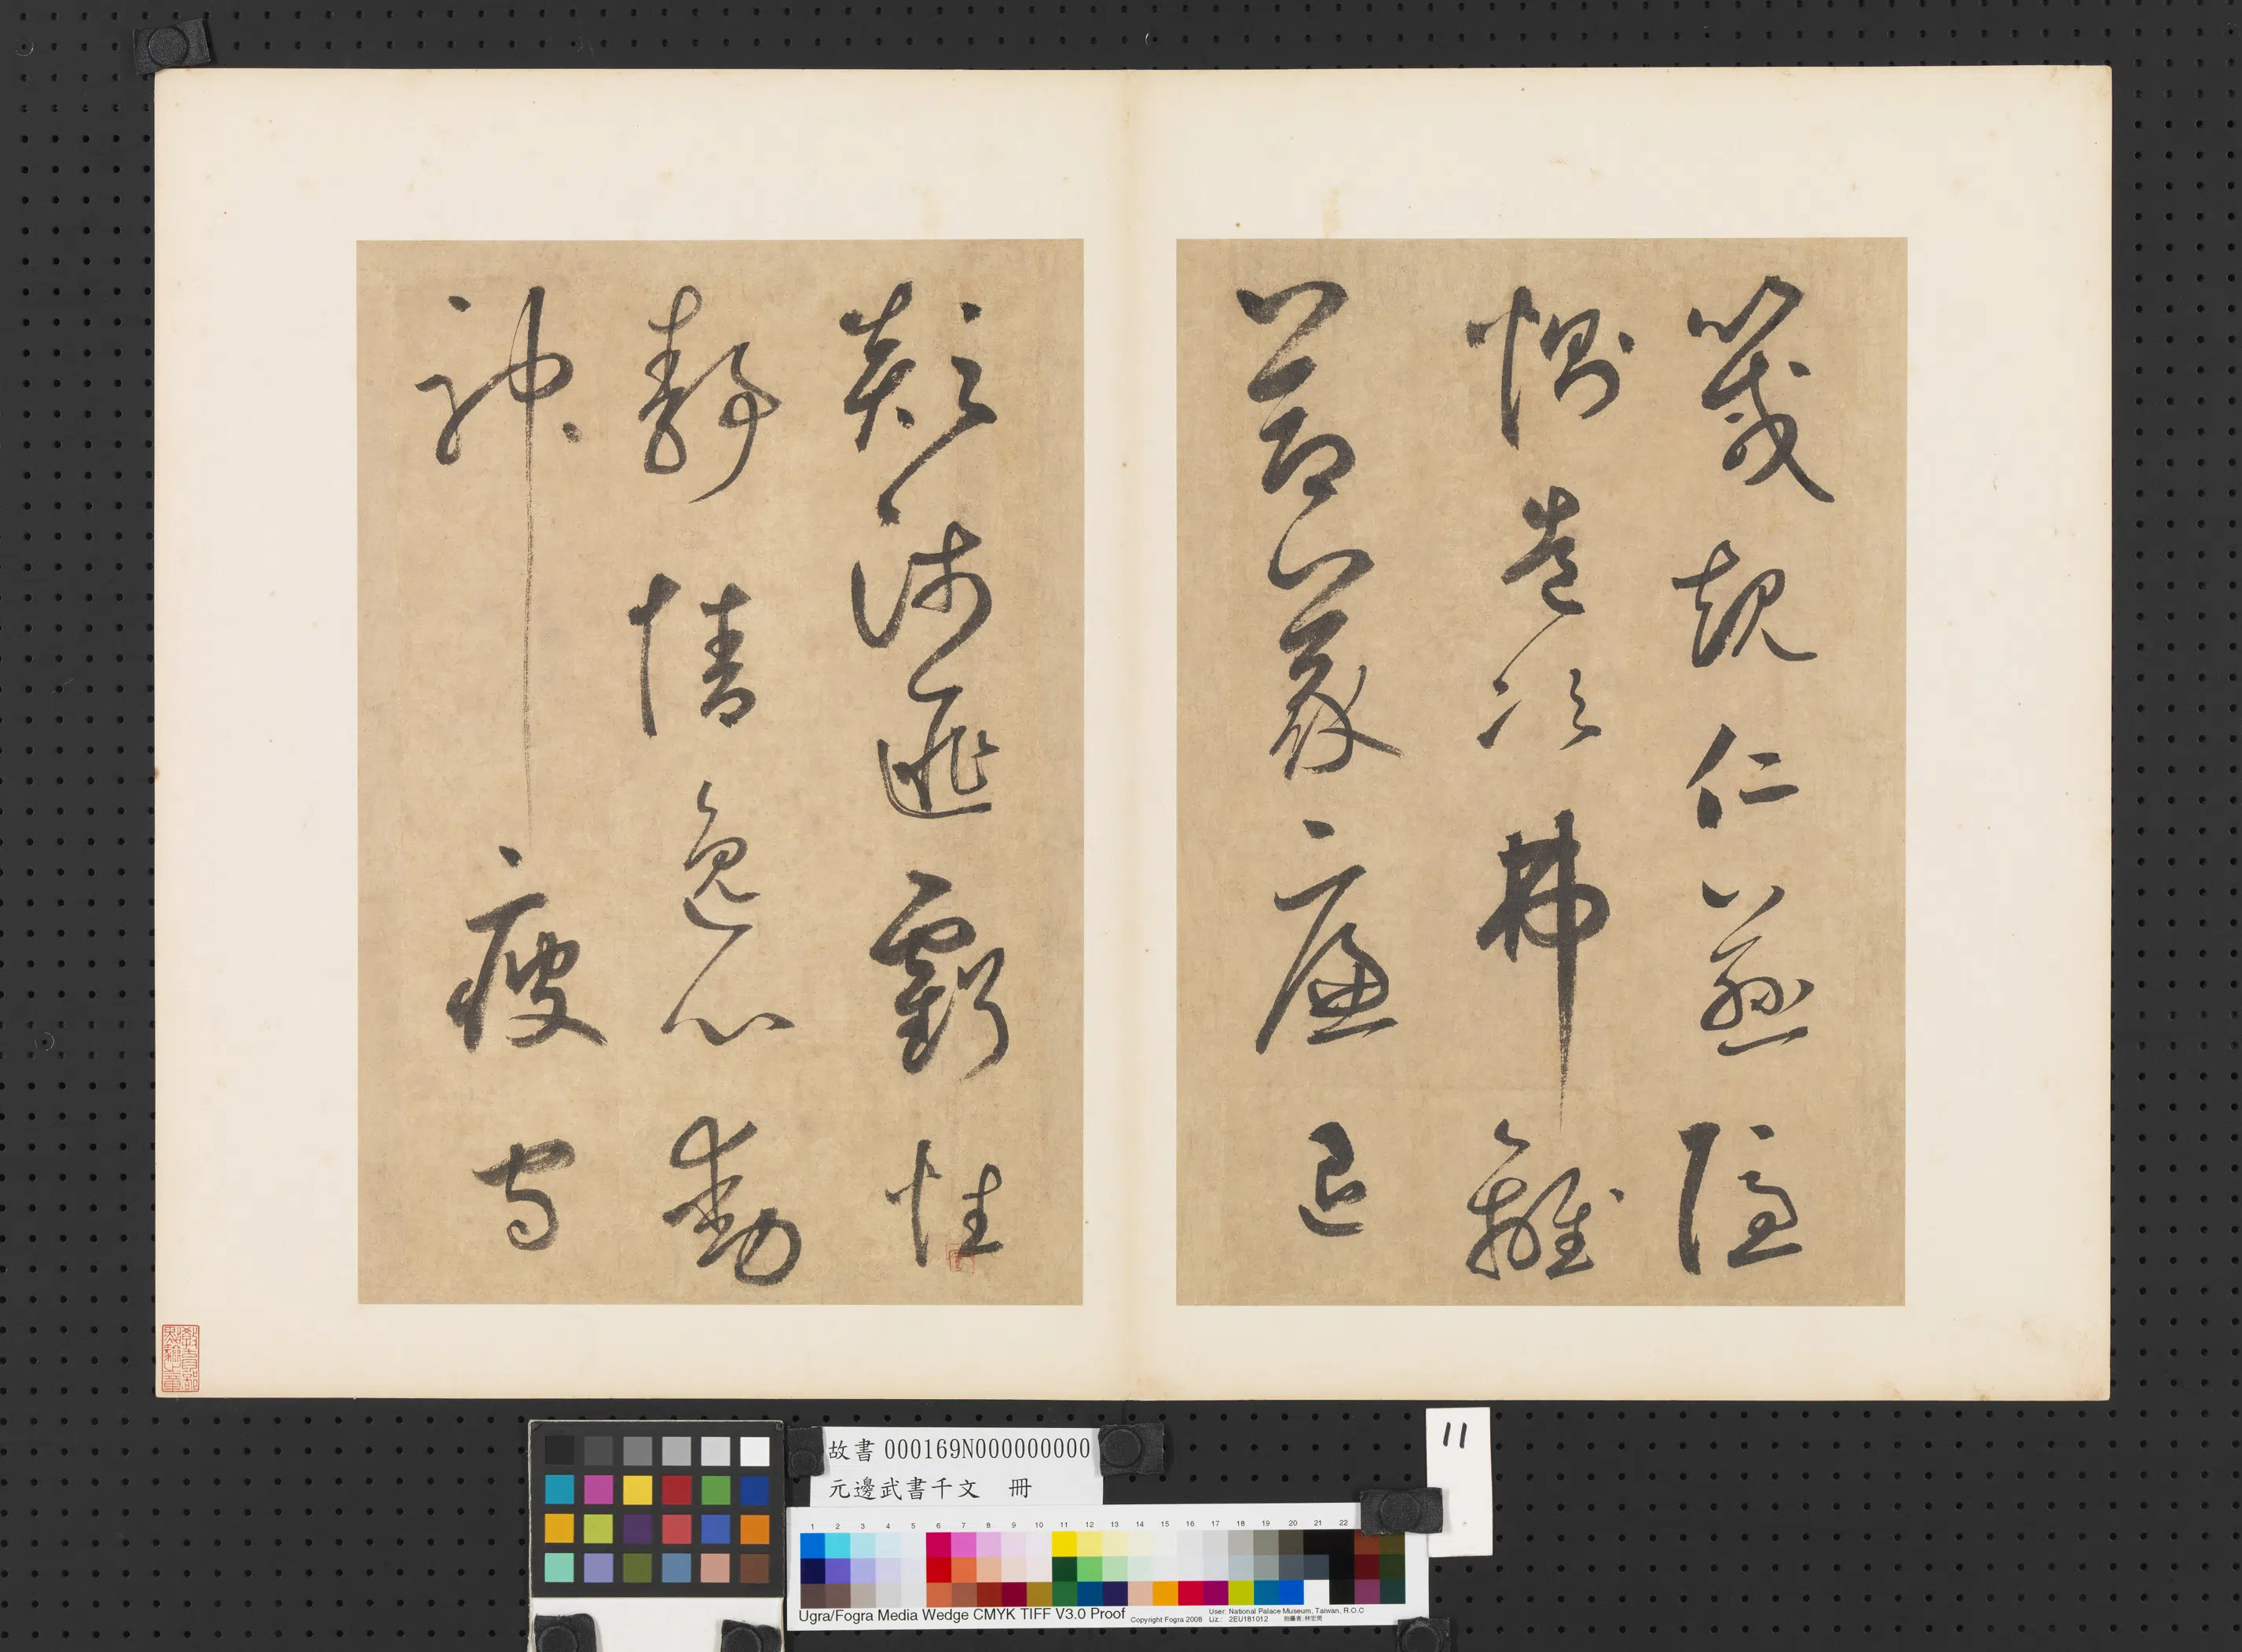 箴規仁慈隱
惻造次弗離
節義廉退
顛沛匪虧性
靜情逸心動
神疲守
教育部
點驗之章
故書 000169N000000000
元邊武書千文 冊
11
1 2 3 4 5 6 7 8 9 10 11 12 13 14 15 16 17 18 19 20 21 22
Ugra/Fogra Media Wedge CMYK TIFF V3.0 Proof
Copyright Fogra 2008
User: National Palace Museum, Taiwan, R.O.C
Liz.: 2EU181012